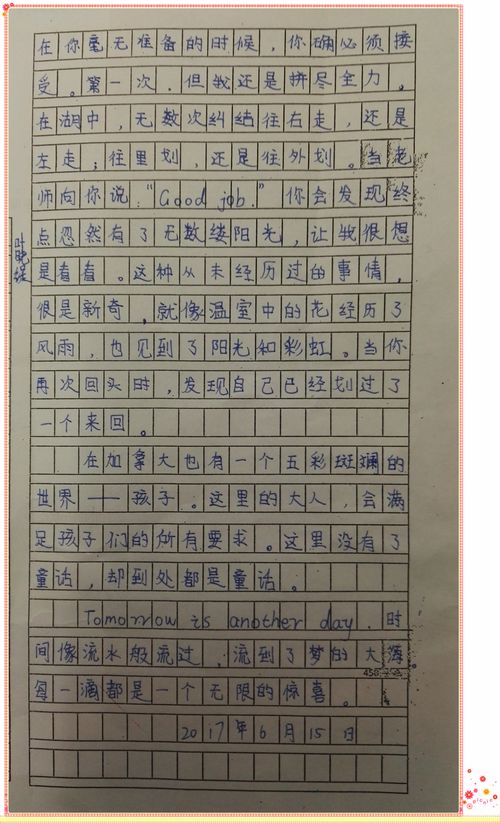 在你毫无准备的时候，你确必须接
受。第一次，但我还是拼尽全力。
在湖中，无数次纠结往右走，还是
左走；往里划，还是往外划。当老
师向你说：“Good job.”你会发现终
点忽然有了无数缕阳光，让我很想
是看看。这种从未经历过的事情，
很是新奇，就像温室中的花经历了
风雨，也见到了阳光和彩虹。当你
再次回头时，发现自己已经划过了
一个来回。
在加拿大也有一个五彩斑斓的
世界——孩子。这里的大人，会满
足孩子们的所有要求。这里没有了
童话，却到处都是童话。
Tomorrow is another day. 时
间像流水般流过，流到了梦的大海。
每一滴都是一个无限的惊喜。
2017年6月15日
picnic